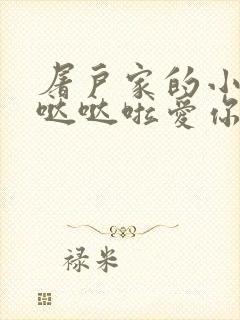 屠户家的小
哒哒啦爱你
禄米